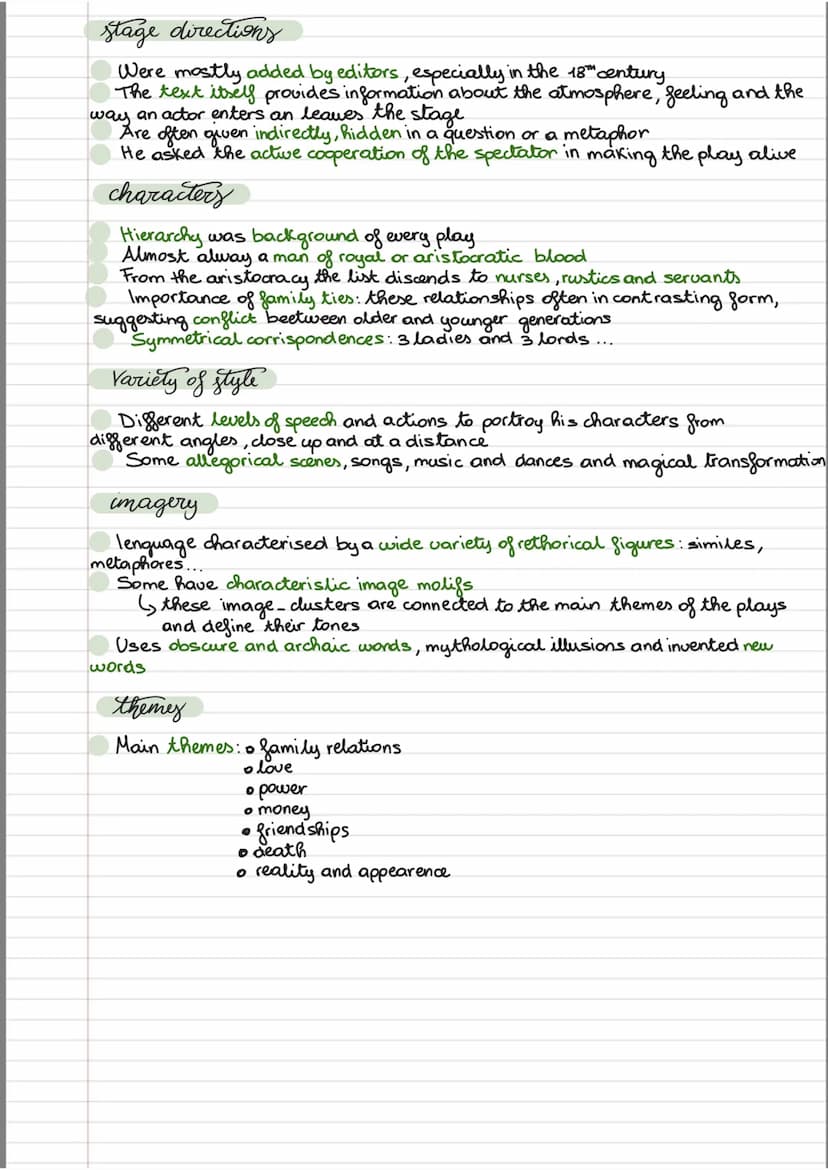 stage directions
Were mostly added by editors, especially in the 18TH century
The text itself provides information about the atmosphere, feeling and the
way an actor enters an leaves the stage
Are often given indirectly, hidden in a question or a metaphor
He asked the active cooperation of the spectator in making the play alive
characters
Hierarchy was background of every play
Almost alway a man of royal or aristocratic blood
From the aristocracy the list discends to nurses, rustics and servants
Importance of family ties: these relationships often in contrasting form,
suggesting conflict beetween older and younger generations
Symmetrical corrispondences: 3 ladies and 3 lords ...
Variety of style
Different levels of speech and actions to portray his characters from
different angles, close up and at a distance
Some allegorical scenes, songs, music and dances and magical transformation
imagery
lenguage characterised by a wide variety of rethorical figures: similes,
metaphores...
Some have characteristic image motifs
↳ these image-clusters are connected to the main themes of the plays
and define their tones
Uses obscure and archaic words, mythological illusions and invented new
words
themes
Main themes: o family relations
o love
o power
o money
o friendships
o death
o reality and appearence